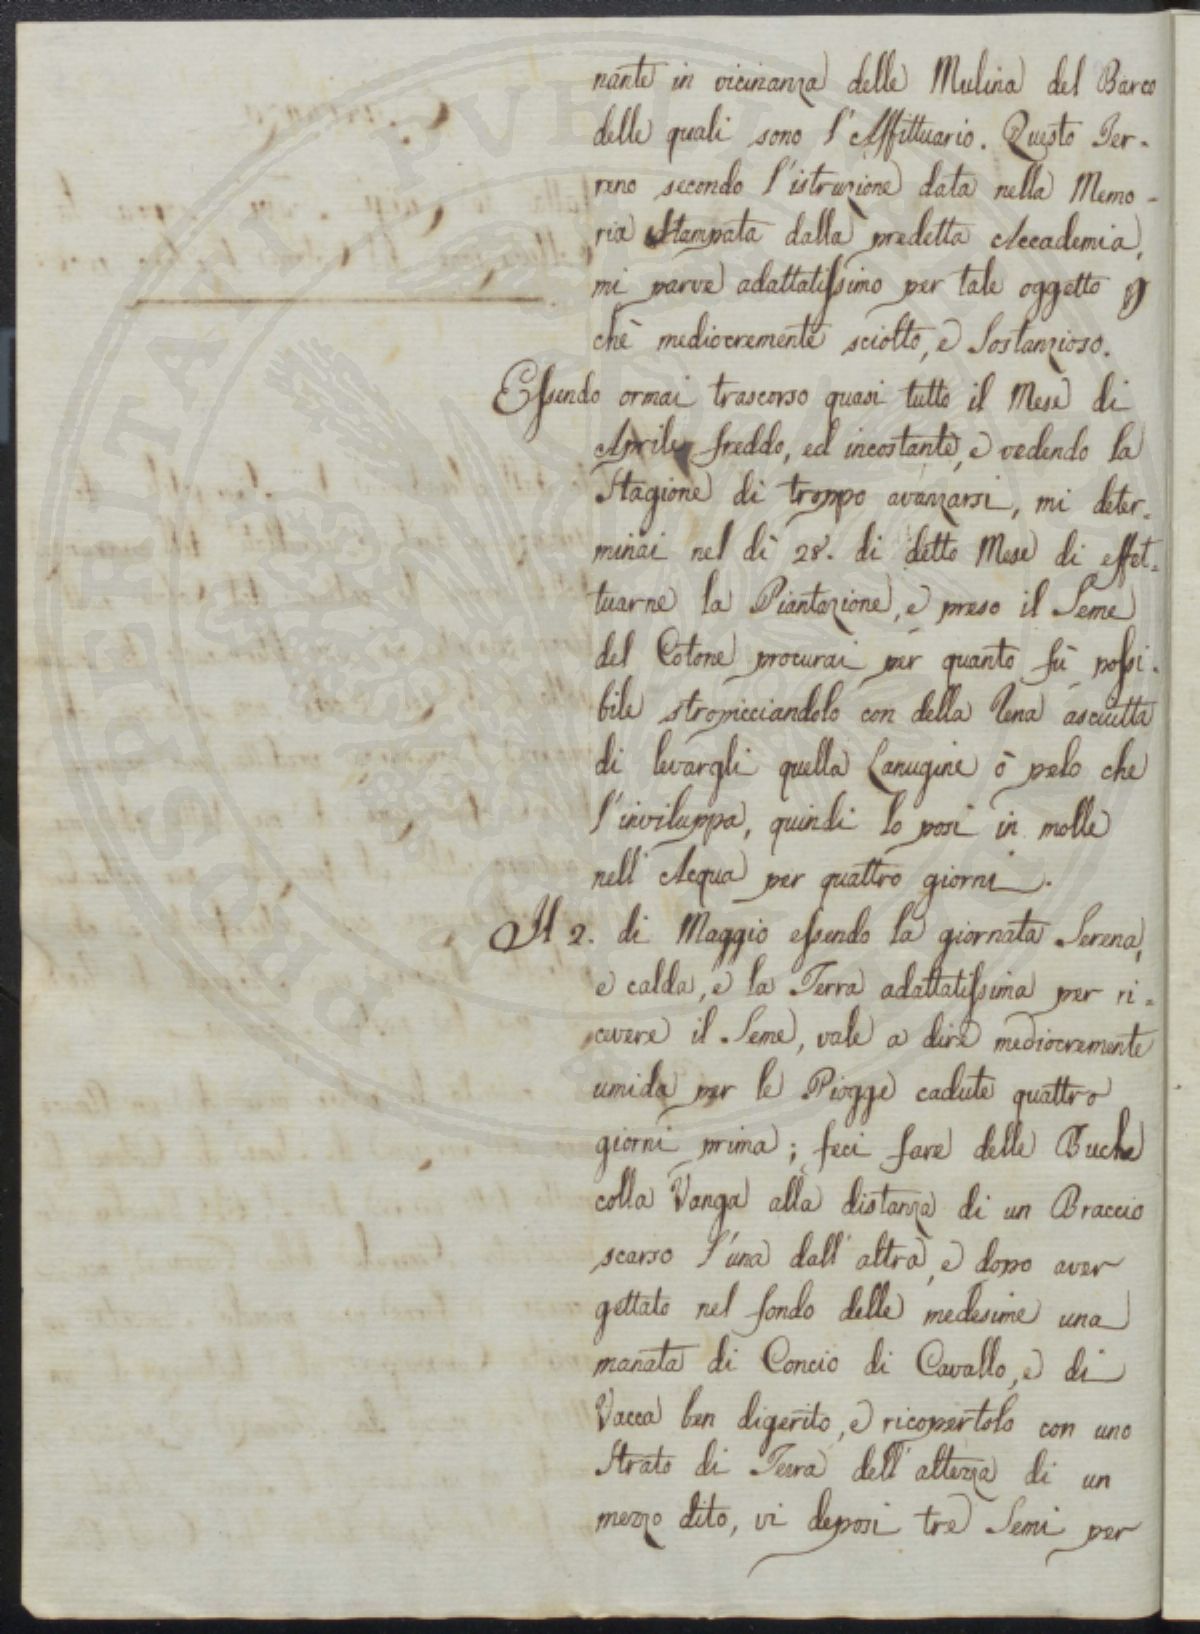 nante in vicinanza delle Mulina del Barco
delle quali sono l'Affittuario. Questo Ter-
reno secondo l'istruzione data nella Memo-
ria Stampata dalla predetta Accademia,
mi parve adattatissimo per tale oggetto p
chè mediocremente sciolto, e Sostanzioso.
Essendo ormai trascorso quasi tutto il Mese di
Aprile freddo, ed incostante, e vedendo la
Stagione di troppo avanzarsi, mi deter-
minai nel dì 28. di detto Mese di effet-
tuarne la Piantazione, e preso il Seme
del Cotone procurai per quanto fù possi-
bile stropicciandolo con della Rena asciutta
di levargli quella Lanugine ò pelo che
l'inviluppa, quindi lo posi in molle
nell'Acqua per quattro giorni.
Il 2. di Maggio essendo la giornata Serena,
e calda, e la Terra adattatissima per ri-
cevere il Seme, vale a dire mediocremente
umida per le Piogge cadute quattro
giorni prima; feci fare delle Buche
colla Vanga alla distanza di un Braccio
scarso l'una dall'altra, e dopo aver
gettato nel fondo delle medesime una
manata di Concio di Cavallo, e di
Vacca ben digerito, e ricopertolo con uno
Strato di Terra dell'altezza di un
mezzo dito, vi deposi tre Semi per
PROSPERITATI PVBLICAE